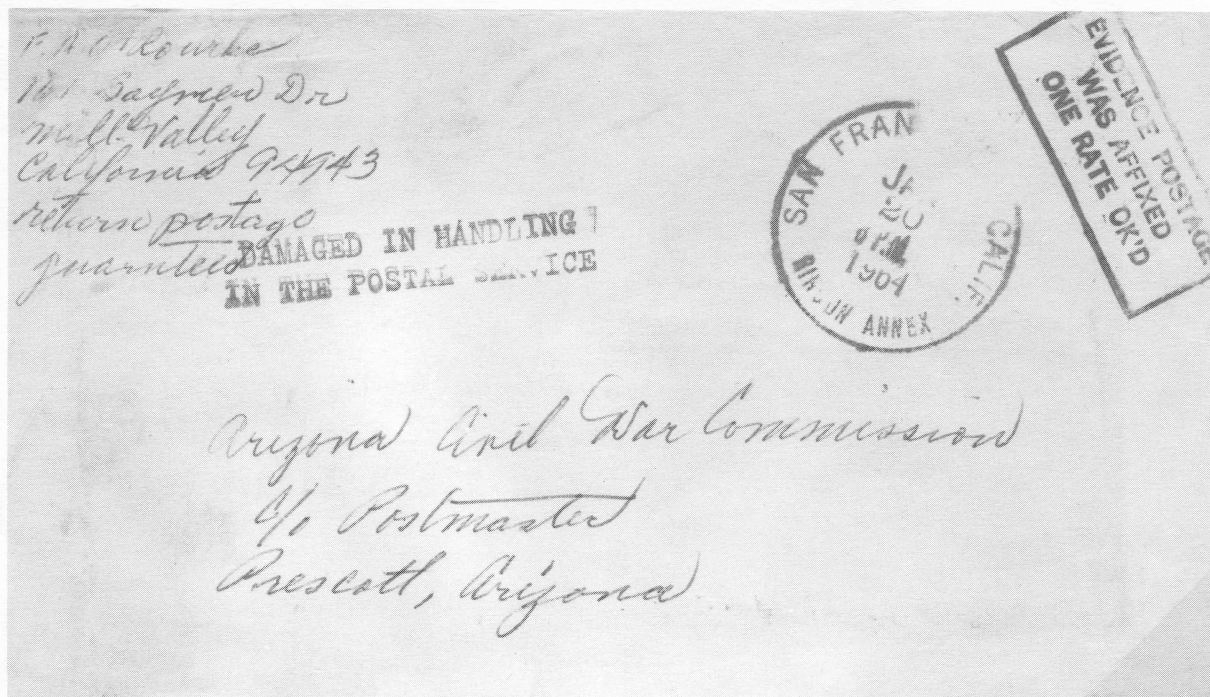 F. A. O'Rourke
Dr
Mill Valley
California 94943
return postage
guarntees
DAMAGED IN HANDLING
IN THE POSTAL SERVICE
SAN FRAN CALIF.
PM
1964
ANNEX
EVIDENCE POSTAGE
WAS AFFIXED
ONE RATE OK'D
Arizona Civil War Commission
c/o Postmaster
Prescott, Arizona